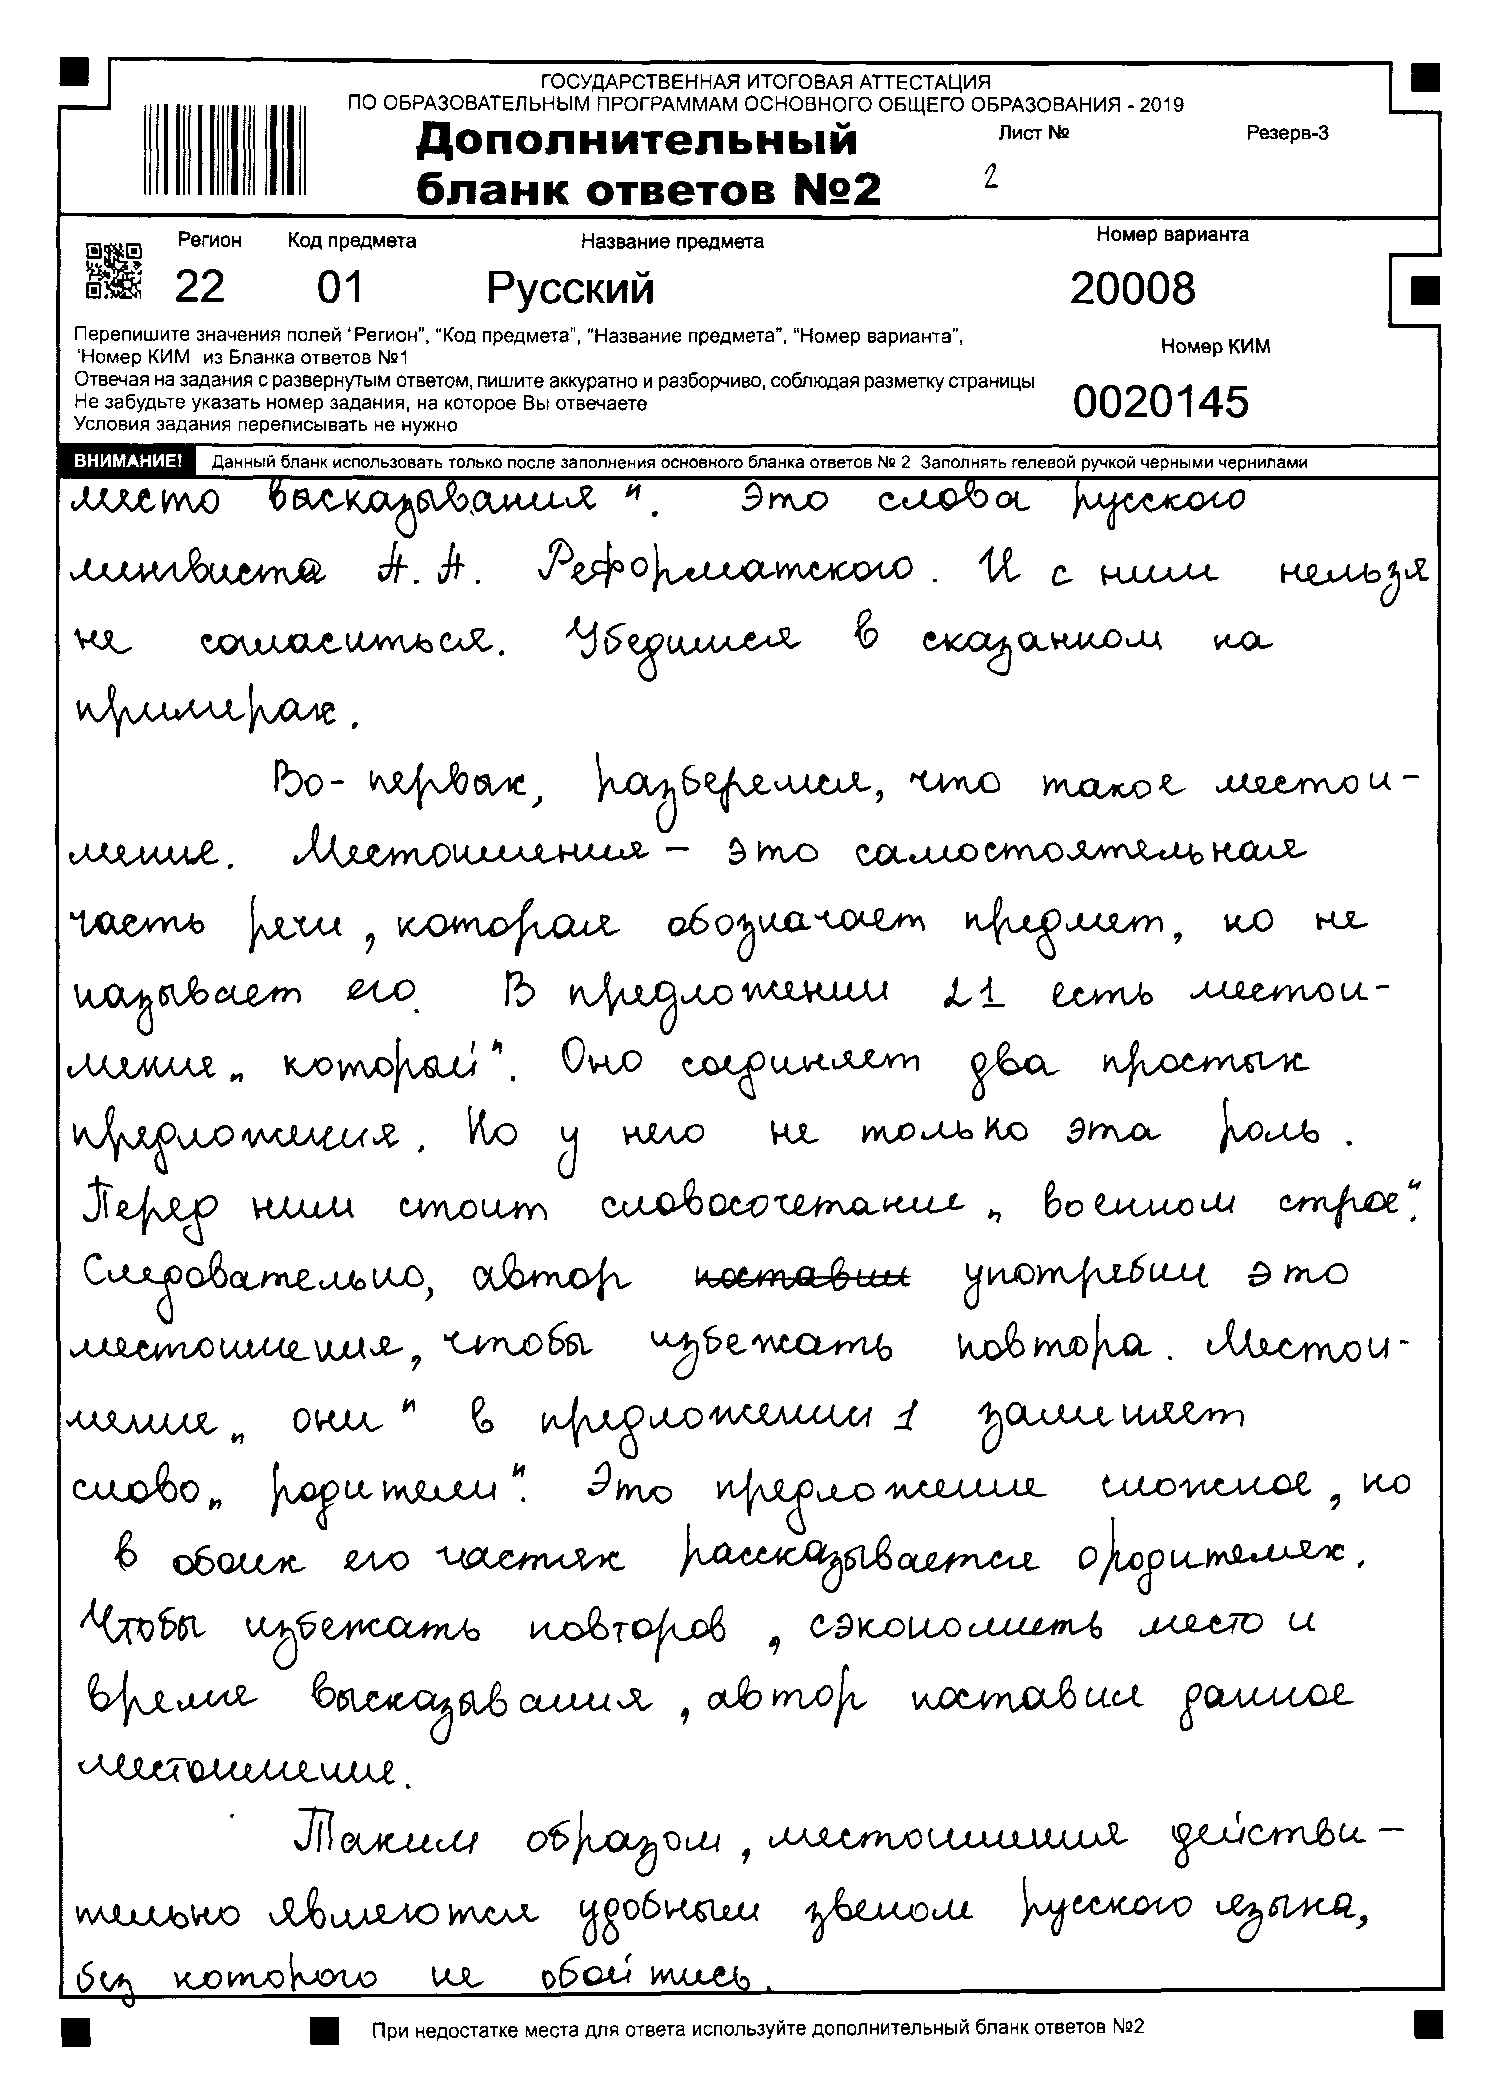 ГОСУДАРСТВЕННАЯ ИТОГОВАЯ АТТЕСТАЦИЯ
ПО ОБРАЗОВАТЕЛЬНЫМ ПРОГРАММАМ ОСНОВНОГО ОБЩЕГО ОБРАЗОВАНИЯ - 2019
Дополнительный
бланк ответов №2
Лист №
2
Резерв-3
Регион Код предмета Название предмета Номер варианта
22 01 Русский 20008
Перепишите значения полей "Регион", "Код предмета", "Название предмета", "Номер варианта",
'Номер КИМ из Бланка ответов №1
Отвечая на задания с развернутым ответом, пишите аккуратно и разборчиво, соблюдая разметку страницы
Не забудьте указать номер задания, на которое Вы отвечаете
Условия задания переписывать не нужно
Номер КИМ
0020145
ВНИМАНИЕ! Данный бланк использовать только после заполнения основного бланка ответов № 2 Заполнять гелевой ручкой черными чернилами
место высказывания". Это слова русского
лингвиста А.А. Реформатского. И с ним нельзя
не согласиться. Убедимся в сказанном на
примерах.
Во-первых, разберемся, что такое местои-
мение. Местоимения - это самостоятельная
часть речи, которая обозначает предмет, но не
называет его. В предложении 21 есть местои-
мение „ который". Оно соединяет два простых
предложения. Но у него не только эта роль.
Перед ним стоит словосочетание „ военном строе".
Следовательно, автор поставил употребил это
местоимения, чтобы избежать повтора. Местои-
мение „ они" в предложении 1 заменяет
слово „ родители". Это предложение сложное, но
в обоих его частях рассказывается о родителях.
Чтобы избежать повторов, сэкономить место и
время высказывания, автор поставил данное
местоимение.
Таким образом, местоимения действи-
тельно являются удобным звеном русского языка,
без которого не обойтись.
При недостатке места для ответа используйте дополнительный бланк ответов №2